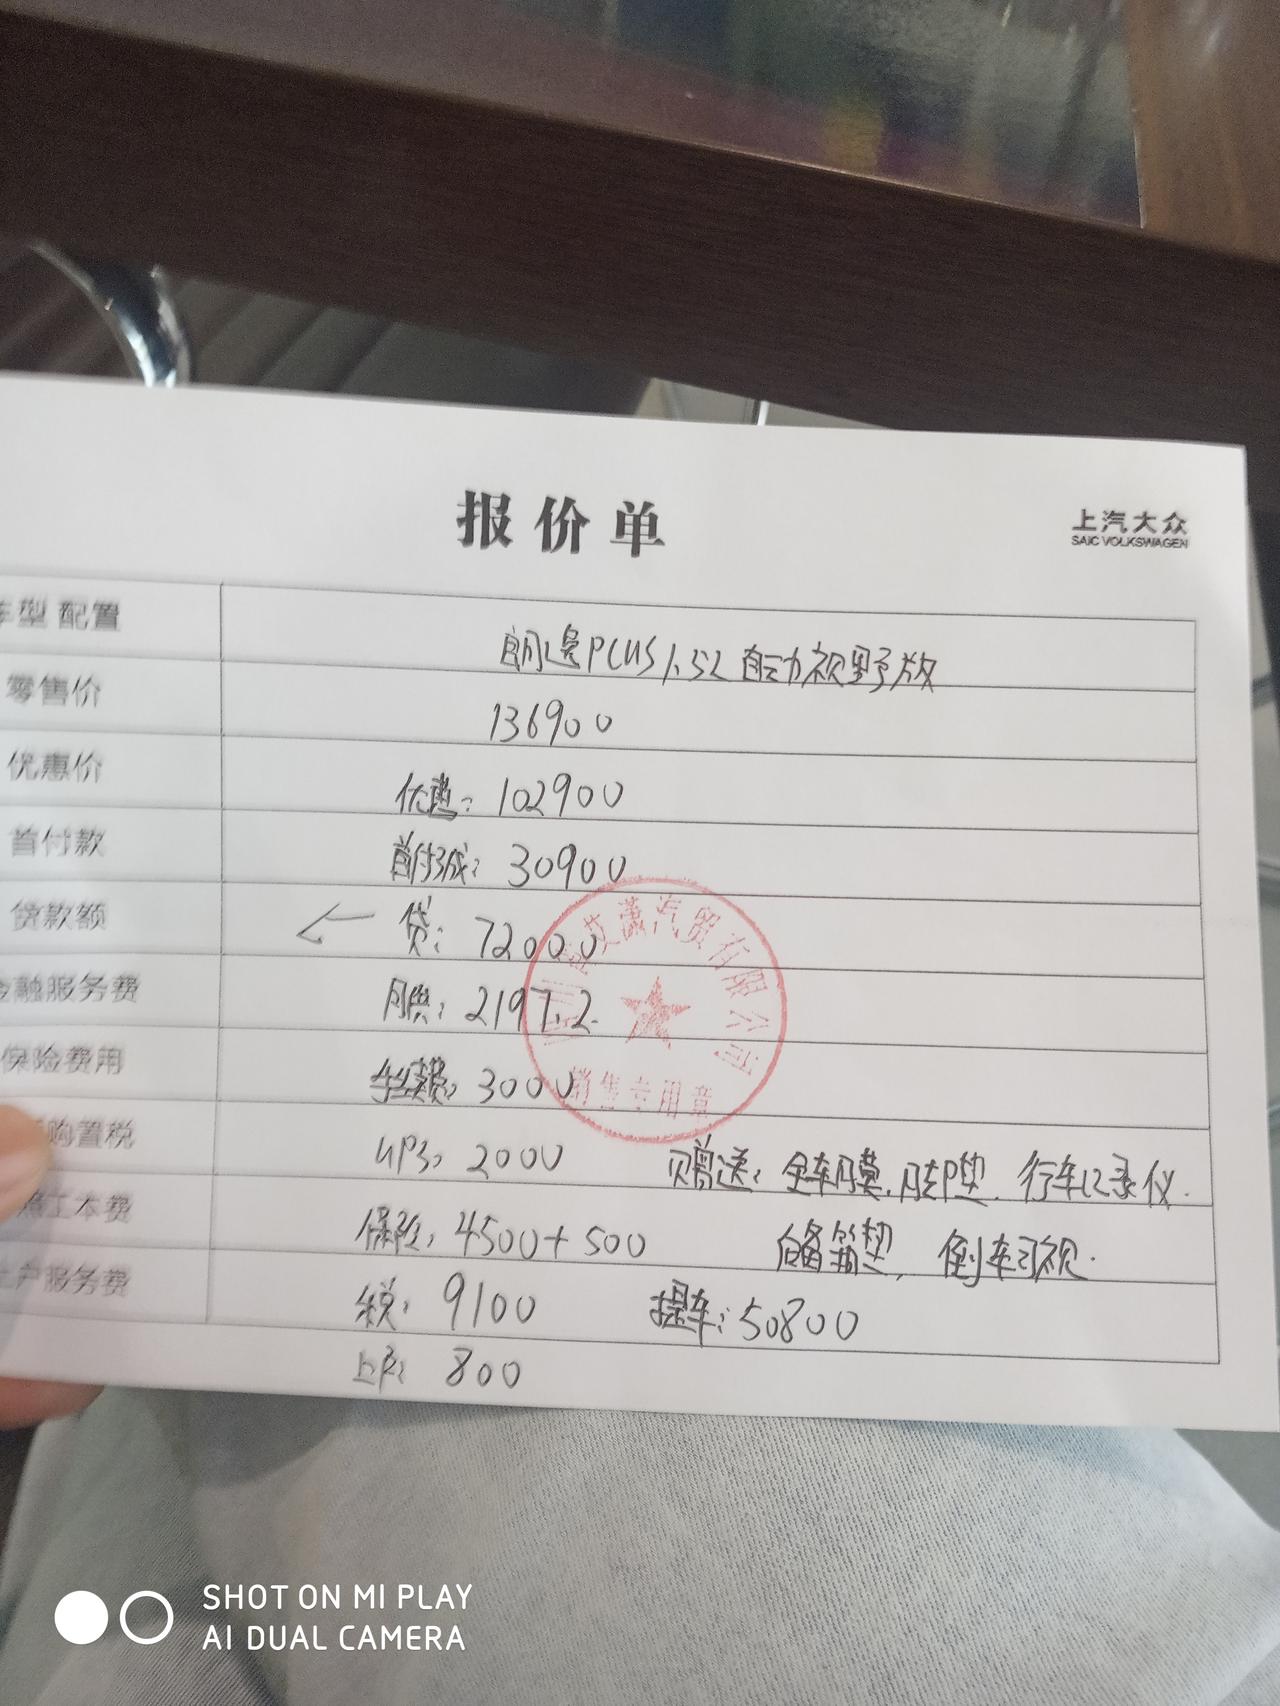 报价单
上汽大众
SAIC VOLKSWAGEN
车型 配置
朗逸PLUS 1.5L 自动视野版
零售价
136900
优惠价
优惠：102900
首付款
首付3成：30900
贷款额
贷：72000
金融服务费
月供：2197.2
保险费用
手续费：3000
购置税
GPS：2000 赠送：全车膜.脚垫.行车记录仪.
照工本费
保险：4500+500 后备箱垫，倒车影视.
上户服务费
税：9100 提车：50800
上户：800
艾潇汽贸有限公司
销售专用章
SHOT ON MI PLAY
AI DUAL CAMERA